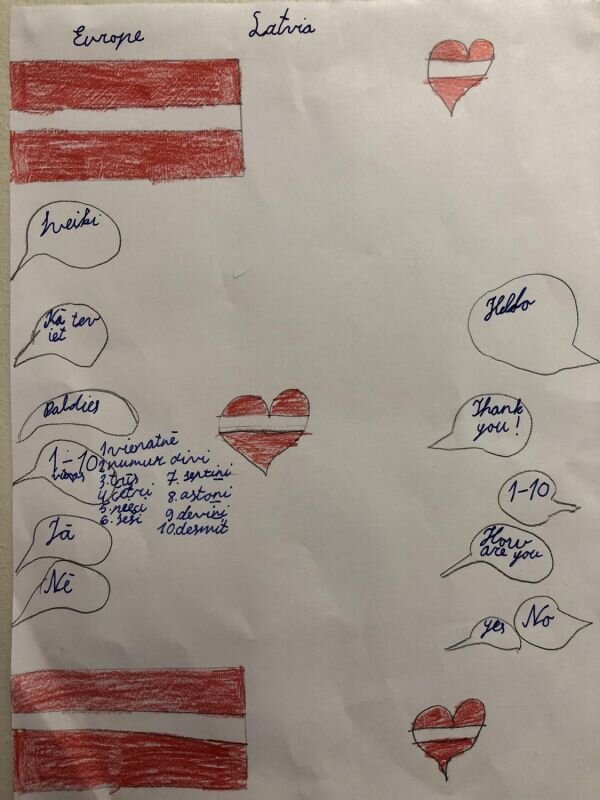 Europe
Latvia
Sveiki
Kā tev
iet
Paldies
1-10
vienas
1 vienatnē
2 numur divi
3. trīs
4. četri
5. pieci
6. seši
7. septiņi
8. astoņi
9. deviņi
10. desmit
Jā
Nē
Hello
Thank
you!
1-10
How
are you
yes
No